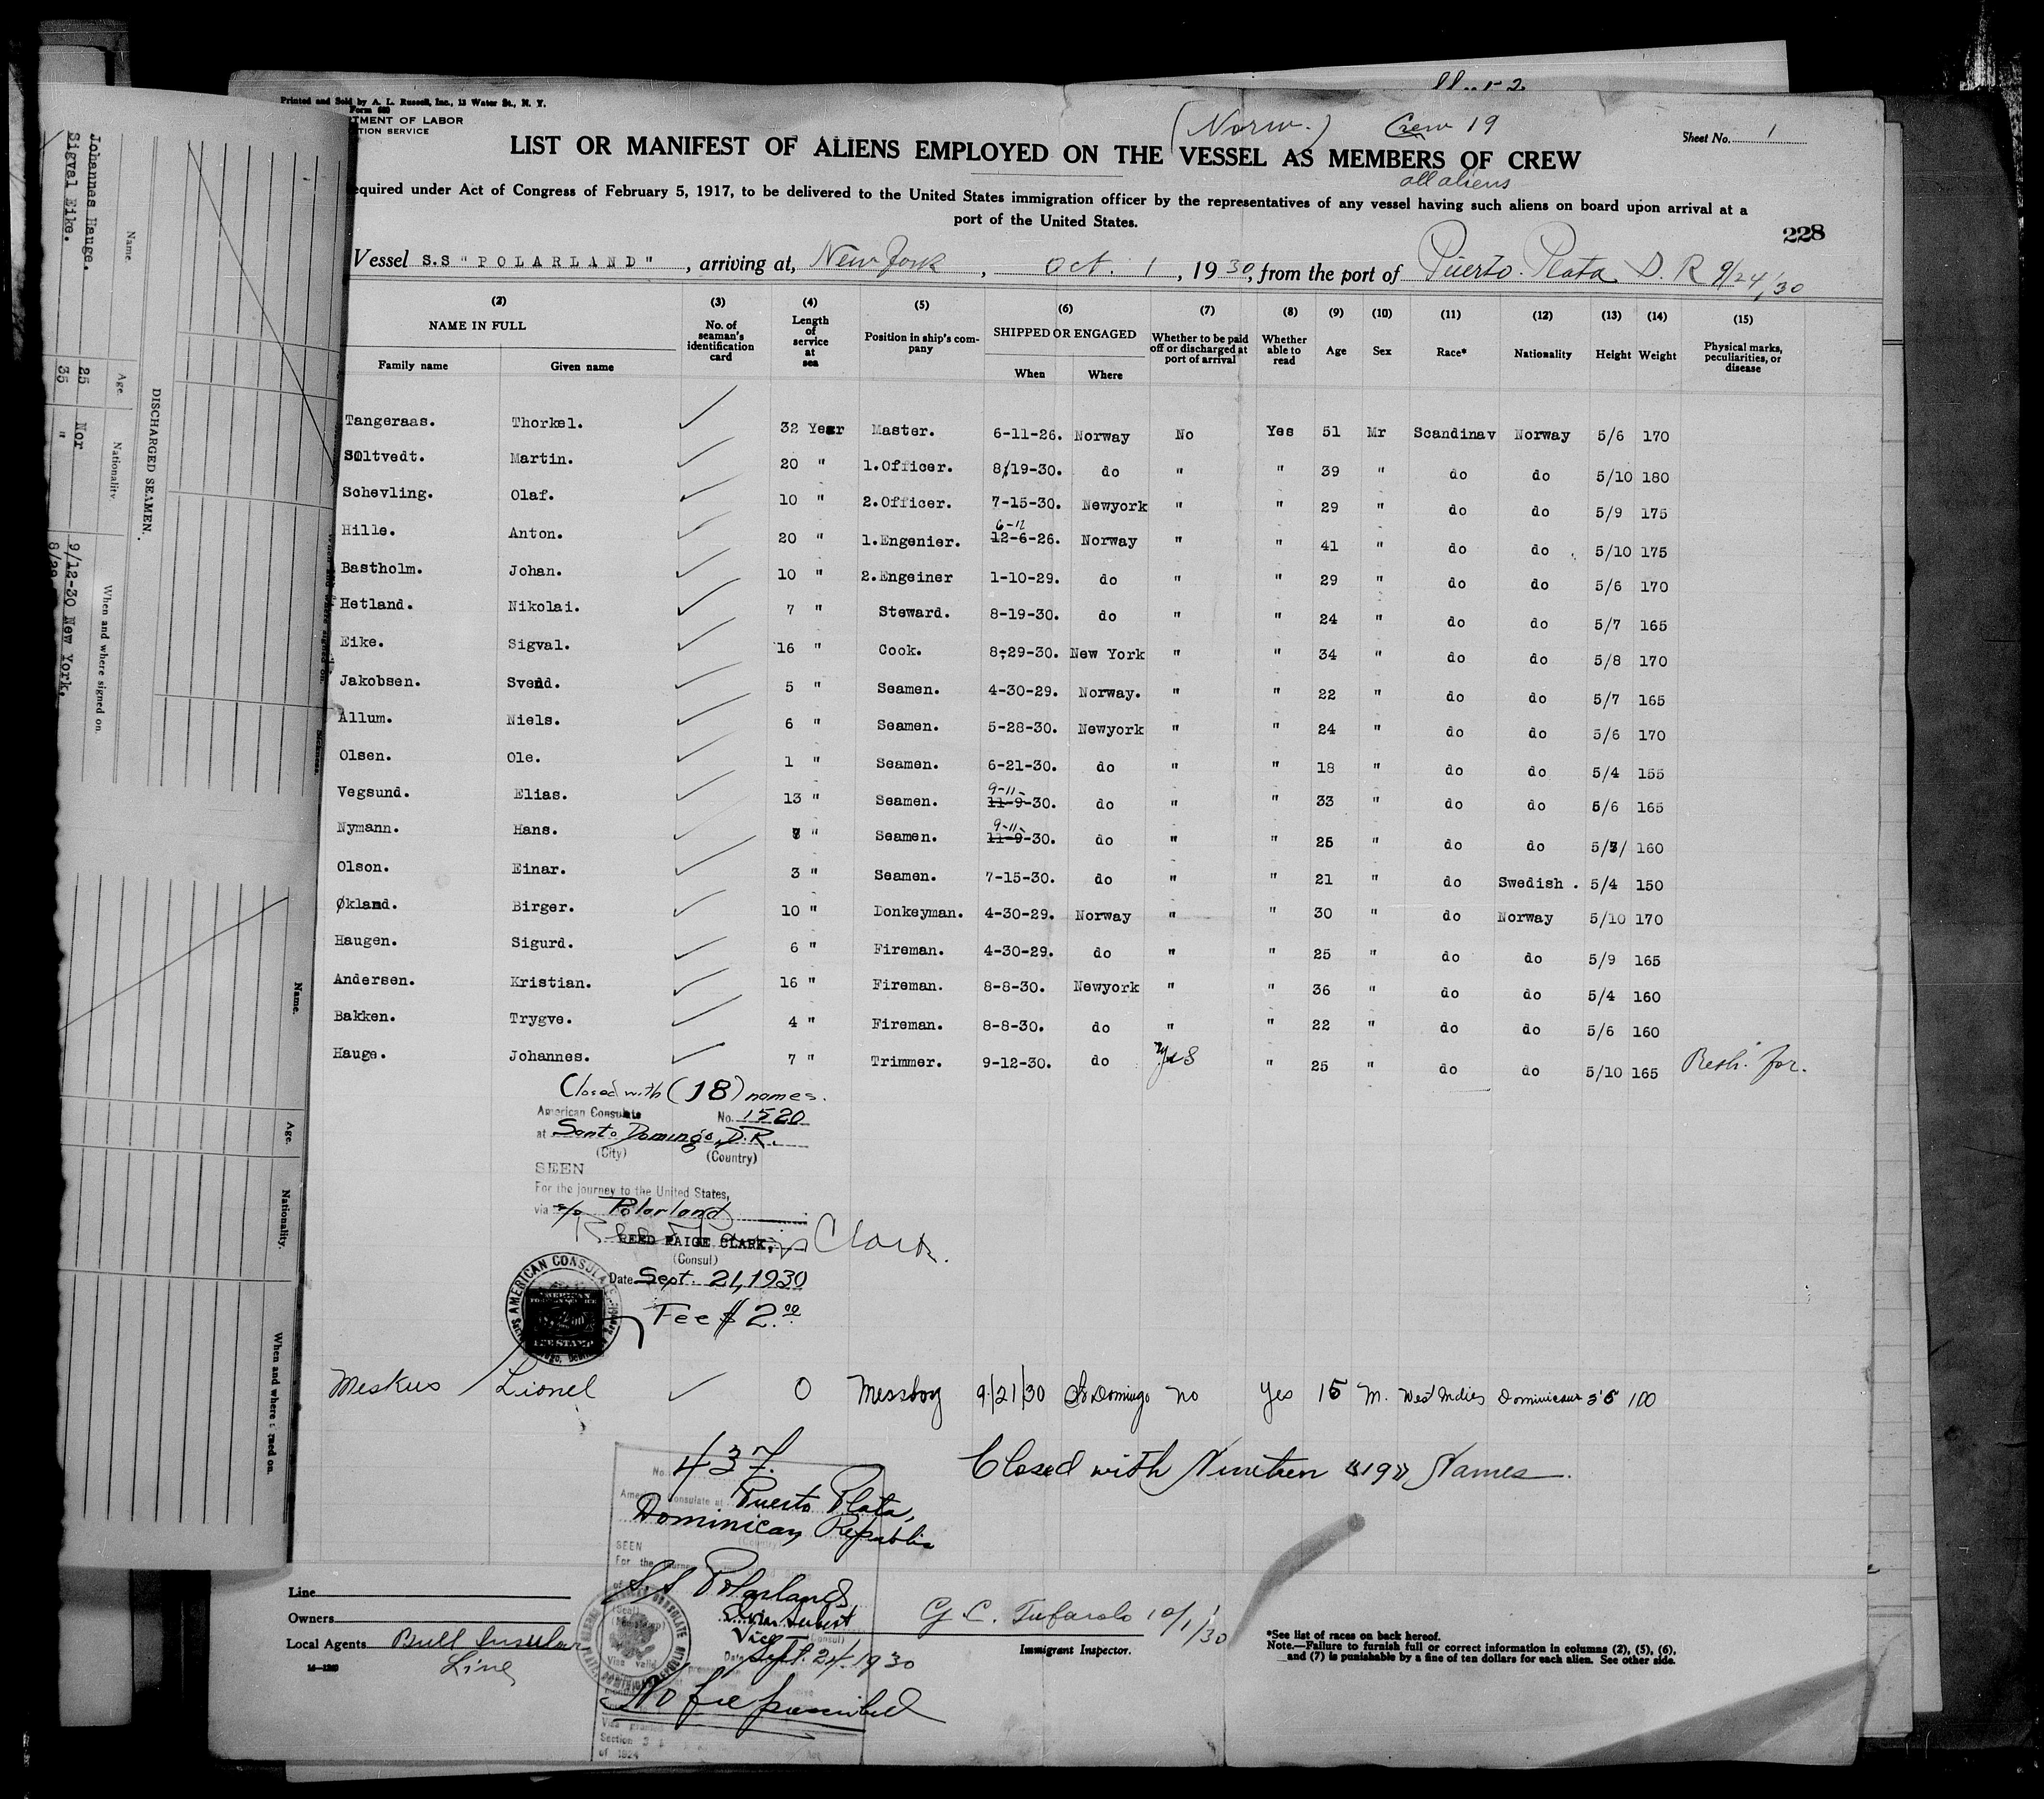 Printed and Sold by A. L. Russell, Inc., 13 Water St., N. Y.
Form 680
TMENT OF LABOR
TION SERVICE
(Norw.) Crew 19
Sheet No. 1
LIST OR MANIFEST OF ALIENS EMPLOYED ON THE VESSEL AS MEMBERS OF CREW
all aliens
equired under Act of Congress of February 5, 1917, to be delivered to the United States immigration officer by the representatives of any vessel having such aliens on board upon arrival at a
port of the United States.
228
Vessel S.S "POLARLAND", arriving at, New York, Oct. 1, 1930, from the port of Puerto Plata D. R 9/24/30
(2) (3) (4) (5) (6) (7) (8) (9) (10) (11) (12) (13) (14) (15)
NAME IN FULL No. of seaman's identification card Length of service at sea Position in ship's company SHIPPED OR ENGAGED Whether to be paid off or discharged at port of arrival Whether able to read Age Sex Race* Nationality Height Weight Physical marks, peculiarities, or disease
Family name Given name When Where
Tangeraas. Thorkel. 32 Year Master. 6-11-26. Norway No Yes 51 Mr Scandinav Norway 5/6 170
Soltvedt. Martin. 20 " 1.Officer. 8/19-30. do " " 39 " do do 5/10 180
Schevling. Olaf. 10 " 2.Officer. 7-15-30. Newyork " " 29 " do do 5/9 175
6-12
Hille. Anton. 20 " 1.Engenier. 12-6-26. Norway " " 41 " do do 5/10 175
Bastholm. Johan. 10 " 2.Engeiner 1-10-29. do " " 29 " do do 5/6 170
Hetland. Nikolai. 7 " Steward. 8-19-30. do " " 24 " do do 5/7 165
Eike. Sigval. 16 " Cook. 8-29-30. New York " " 34 " do do 5/8 170
Jakobsen. Svend. 5 " Seamen. 4-30-29. Norway. " " 22 " do do 5/7 165
Allum. Niels. 6 " Seamen. 5-28-30. Newyork " " 24 " do do 5/6 170
Olsen. Ole. 1 " Seamen. 6-21-30. do " " 18 " do do 5/4 155
9-11-
Vegsund. Elias. 13 " Seamen. 11-9-30. do " " 33 " do do 5/6 165
9-11-
Nymann. Hans. " Seamen. 11-9-30. do " " 25 " do do 160
Olson. Einar. 3 " Seamen. 7-15-30. do " " 21 " do Swedish . 5/4 150
Økland. Birger. 10 " Donkeyman. 4-30-29. Norway " " 30 " do Norway 5/10 170
Haugen. Sigurd. 6 " Fireman. 4-30-29. do " " 25 " do do 5/9 165
Andersen. Kristian. 16 " Fireman. 8-8-30. Newyork " " 36 " do do 5/4 160
Bakken. Trygve. 4 " Fireman. 8-8-30. do " " 22 " do do 5/6 160
Hauge. Johannes. 7 " Trimmer. 9-12-30. do Yes " 25 " do do 5/10 165
Closed with (18) names.
American Consulate No. 1520
at Santo Domingo, D.R.
(City) (Country)
SEEN
For the journey to the United States,
via s/s Polarland
REED PAIGE CLARK, Clark.
(Consul)
Date Sept. 21, 1930
AMERICAN CONSULATE
Fee $2.00
Meskus Lionel 0 Messboy 9/21/30 Sto Domingo no yes 15 M. West Indies Dominican 5'5 100
437.
Closed with Nineteen "19" Names
No.
American Consulate at Puerto Plata,
Dominican Republic
(Country)
SEEN
For the journey
S.S Polarland
Vice (Consul)
Date Sept. 24 1930
No fee prescribed
Section 3
of 1924
Line
Owners
Local Agents Bull Insular
Line
14—1240
G. C. Tufarolo 10/1/30
Immigrant Inspector.
*See list of races on back hereof.
Note.—Failure to furnish full or correct information in columns (2), (5), (6),
and (7) is punishable by a fine of ten dollars for each alien. See other side.
DISCHARGED SEAMEN.
Name Age Nationality When and where signed on
Johannes Hauge. 25 Nor 9/12-30 New York.
Sigval Eike. 35 "
Name. Age. Nationality. When and where signed on.